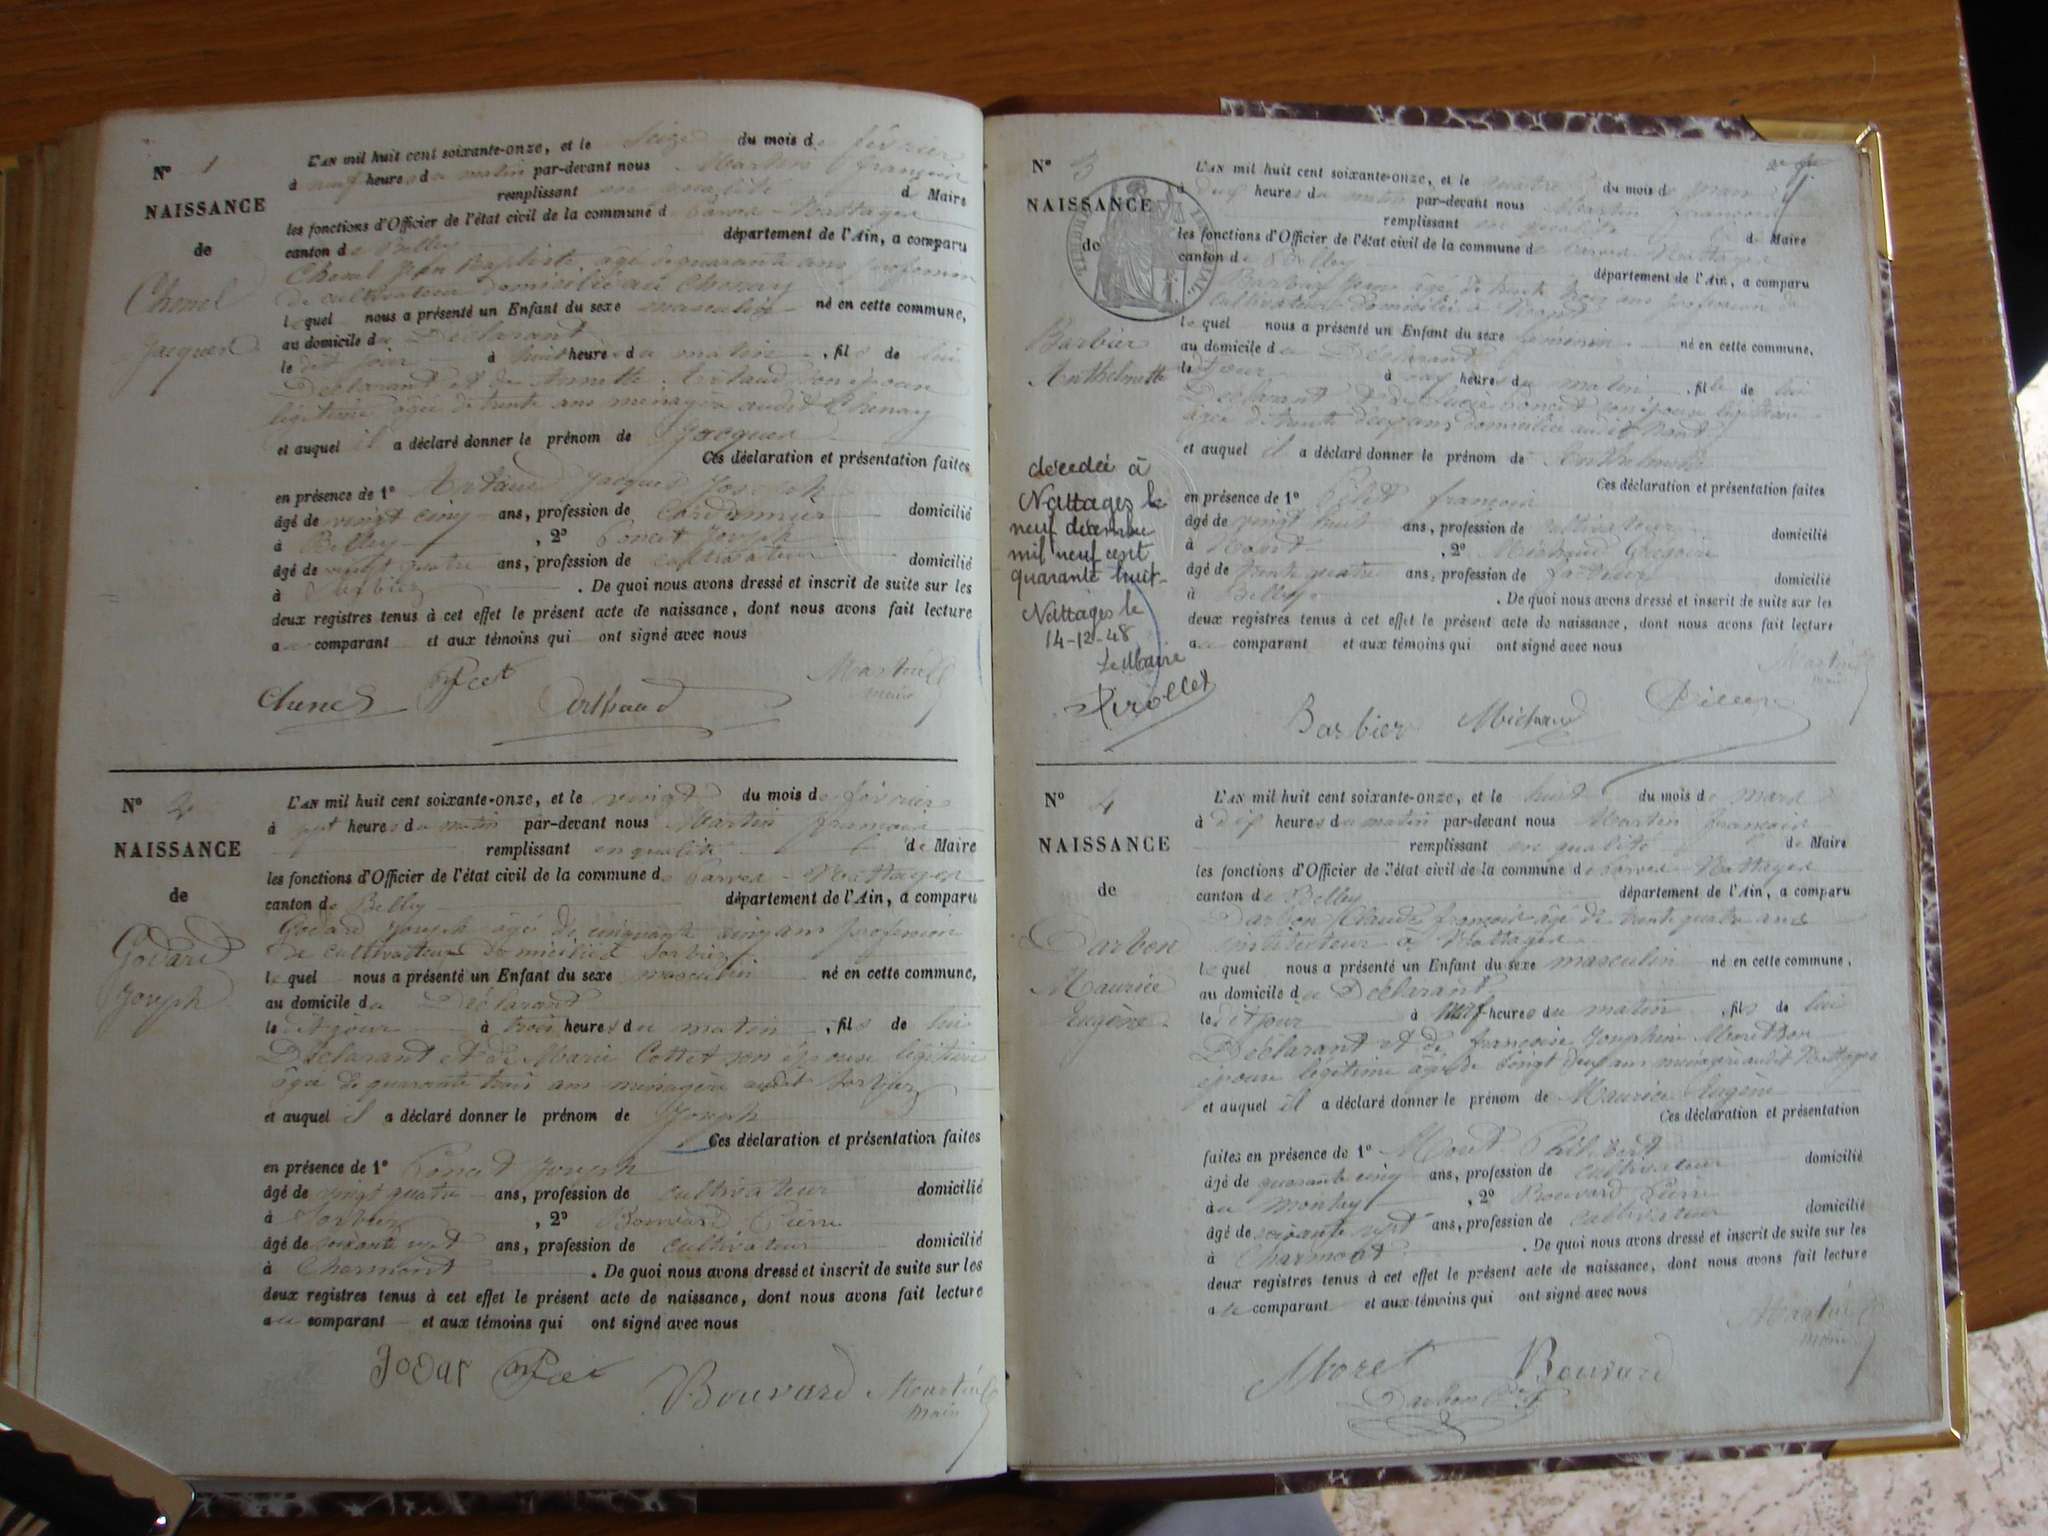 N° 1
NAISSANCE
de
Chenel
Jacques
L'AN mil huit cent soixante-onze, et le seize du mois de février
à neuf heures du matin par-devant nous Martin françois
remplissant en qualité de Maire
les fonctions d'Officier de l'état civil de la commune de Nattages
canton de Belley département de l'Ain, a comparu
Chenel Jean Baptiste âgé de quarante ans profession
de cultivateur domicilié au Chenay
lequel nous a présenté un Enfant du sexe masculin né en cette commune,
au domicile du Déclarant
le dit jour à huit heures du matin, fils de lui
Déclarant et de Annette Artaud son épouse
légitime âgée de trente ans ménagère audit Chenay
et auquel il a déclaré donner le prénom de Jacques
Ces déclaration et présentation faites
en présence de 1° Artaud Jacques Joseph
âgé de vingt cinq ans, profession de Cordonnier domicilié
à Belley, 2° Poncet Joseph
âgé de vingt quatre ans, profession de cultivateur domicilié
à Sorbier. De quoi nous avons dressé et inscrit de suite sur les
deux registres tenus à cet effet le présent acte de naissance, dont nous avons fait lecture
au comparant et aux témoins qui ont signé avec nous
Chenel Arthaud Martin
maire
N° 2
NAISSANCE
de
Godard
Joseph
L'AN mil huit cent soixante-onze, et le vingt du mois de février
à sept heures du matin par-devant nous Martin françois
remplissant en qualité de Maire
les fonctions d'Officier de l'état civil de la commune de Nattages
canton de Belley département de l'Ain, a comparu
Godard Joseph âgé de cinquante cinq ans profession
de cultivateur domicilié à Sorbier
lequel nous a présenté un Enfant du sexe masculin né en cette commune,
au domicile du Déclarant
le dit jour à trois heures du matin, fils de lui
Déclarant et de Marie Cottet son épouse légitime
âgée de quarante trois ans ménagère audit Sorbier
et auquel il a déclaré donner le prénom de Joseph
Ces déclaration et présentation faites
en présence de 1° Poncet Joseph
âgé de vingt quatre ans, profession de cultivateur domicilié
à Sorbier, 2° Bouvard Pierre
âgé de soixante sept ans, profession de cultivateur domicilié
à Charmont. De quoi nous avons dressé et inscrit de suite sur les
deux registres tenus à cet effet le présent acte de naissance, dont nous avons fait lecture
au comparant et aux témoins qui ont signé avec nous
Godar Bouvard Martin
maire
N° 3
NAISSANCE
de
Barbier
Anthelmette
décédée à
Nattages le
neuf décembre
mil neuf cent
quarante huit
Nattages le
14-12-48
Le Maire
Pirollet
L'AN mil huit cent soixante-onze, et le quatre du mois de mars
à heures du matin par-devant nous Martin françois
remplissant en qualité de Maire
les fonctions d'Officier de l'état civil de la commune de Nattages
canton de Belley département de l'Ain, a comparu
Barbier Jean âgé de trente trois ans profession de
cultivateur domicilié à Nant
lequel nous a présenté un Enfant du sexe féminin né en cette commune,
au domicile du Déclarant
le à heures du matin, fille de lui
Déclarant et de Lucie Poncet son épouse légitime
âgée de trente deux ans domiciliée audit Nant
et auquel il a déclaré donner le prénom de Anthelmette
Ces déclaration et présentation faites
en présence de 1° françois
âgé de vingt huit ans, profession de cultivateur domicilié
à Nant, 2° Michaud Grégoire
âgé de trente quatre ans, profession de facteur domicilié
à Belley. De quoi nous avons dressé et inscrit de suite sur les
deux registres tenus à cet effet le présent acte de naissance, dont nous avons fait lecture
au comparant et aux témoins qui ont signé avec nous
Martin
maire
Barbier Michaud
N° 4
NAISSANCE
de
Darbon
Maurice
Eugène
L'AN mil huit cent soixante-onze, et le huit du mois de mars
à dix heures du matin par-devant nous Martin françois
remplissant en qualité de Maire
les fonctions d'Officier de l'état civil de la commune de Nattages
canton de Belley département de l'Ain, a comparu
Darbon Claude françois âgé de trente quatre ans
instituteur à Nattages
lequel nous a présenté un Enfant du sexe masculin né en cette commune,
au domicile du Déclarant
le dit jour à neuf heures du matin, fils de lui
Déclarant et de françoise Joséphine
épouse légitime âgée de vingt deux ans ménagère audit Nattages
et auquel il a déclaré donner le prénom de Maurice Eugène
Ces déclaration et présentation
faites en présence de 1° Moret Philibert
âgé de quarante cinq ans, profession de cultivateur domicilié
au Montey, 2° Bouvard Pierre
âgé de soixante sept ans, profession de cultivateur domicilié
à Charmont. De quoi nous avons dressé et inscrit de suite sur les
deux registres tenus à cet effet le présent acte de naissance, dont nous avons fait lecture
au comparant et aux témoins qui ont signé avec nous
Martin
maire
Moret Bouvard
Darbon